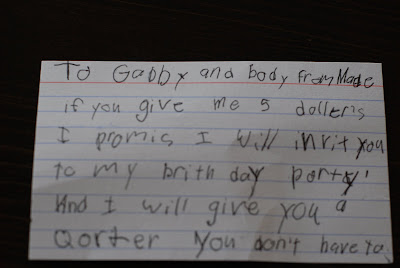 To Gabby and body from Made
if you give me 5 dollers
I promis I will inrit you
to my brith day party
And I will give you a
Qorter You don't have to